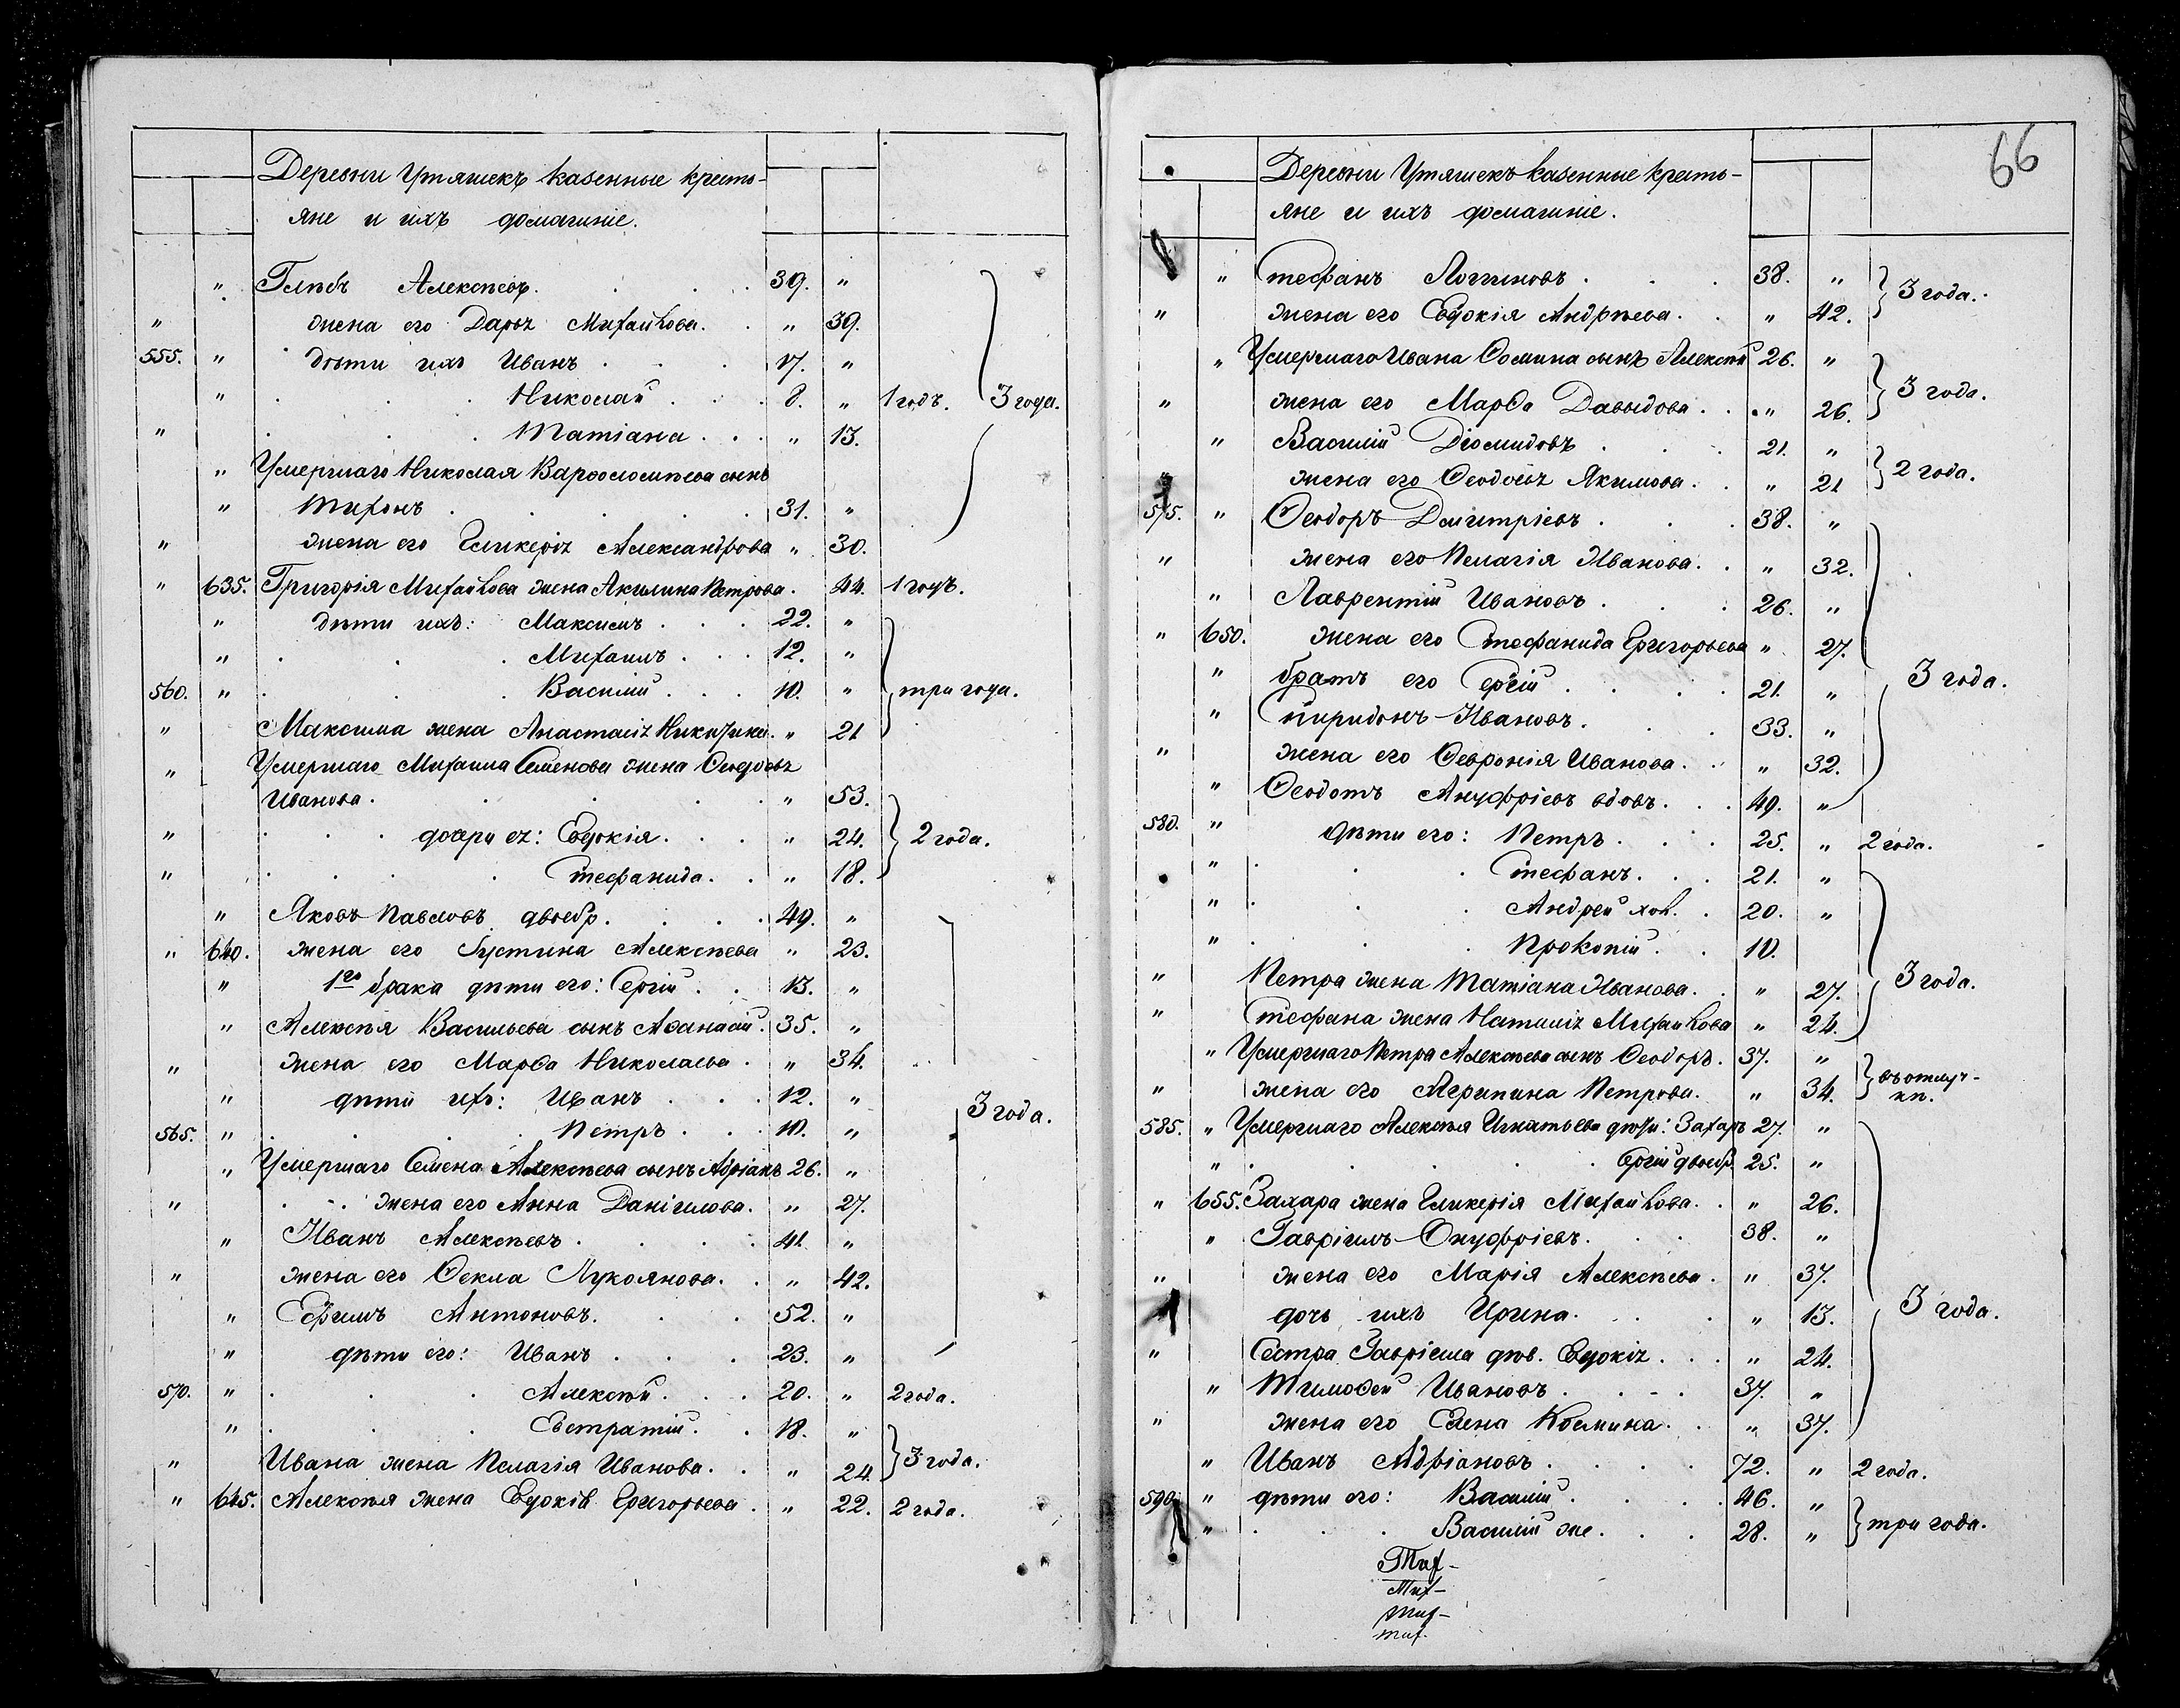 Деревни Утяшекъ казенные кресть-
яне и ихъ домашніе.
" Глѣбъ Алексѣевъ. 39. "
" жена его Дарья Михайлова. " 39.
555. " дѣти ихъ Иванъ 17. "
" Николай 8. " 1 годъ. 3 года.
" Татіана " 13.
" Умершаго Николая Варѳоломѣева сынъ
" Тихонъ 31. "
" жена его Гликерія Александрова " 30.
" 635. Григорія Михайлова жена Акилина Петрова. 44. 1 годъ.
" дѣти ихъ: Максимъ 22. "
" Михаилъ 12. "
560. " Василій 10. " три года.
" Максима жена Анастасія Никитина. " 21
" Умершаго Михаила Семенова жена Ѳеодосья
Иванова. " 53.
" дочери ея: Евдокія. " 24. 2 года.
" Стефанида. " 18.
" Яковъ Павловъ двоебр. 49. "
" 640. жена его Густина Алексѣева " 23.
" 1го брака дѣти его: Сергій 13. "
" Алексѣя Васильева сынъ Аѳанасій. 35. "
" жена его Марѳа Николаева " 34.
" дѣти ихъ: Иванъ 12. " 3 года.
565. " Петръ 10. "
" Умершаго Семена Алексѣева сынъ Адріанъ 26. "
" жена его Анна Даніилова. " 27.
" Иванъ Алексѣевъ 41. "
" жена его Ѳекла Лукоянова. " 42.
" Ефимъ Антоновъ. 52. "
" дѣти его: Иванъ 23. "
570. " Алексѣй. 20. " 2 года.
" Евстратій. 18. "
" Ивана жена Пелагія Иванова. " 24. 3 года.
" 645. Алексѣя жена Евдокія Григорьева. " 22. 2 года.
66
Деревни Утяшекъ казенные кресть-
яне и ихъ домашніе.
" Стефанъ Логиновъ. 38. " 3 года.
" жена его Евдокія Андрѣева. " 42.
" Умершаго Ивана Ѳомина сынъ Алексѣй 26. "
" жена его Марѳа Давыдова. " 26. 3 года.
" Василій Діомидовъ 21. "
" жена его Ѳеодосья Якимова. " 21 2 года.
575. " Ѳеодоръ Димитріевъ 38. "
" жена его Пелагія Иванова. " 32.
" Лаврентій Ивановъ 26. "
" 650. жена его Стефанида Григорьева " 27.
" братъ его Сергій 21. " 3 года.
" Спиридонъ Ивановъ. 33. "
" жена его Ѳевронія Иванова. " 32.
" Ѳеодотъ Ануфріевъ вдовъ. 49. "
580. " дѣти его: Петръ 25. " 2 года.
" Стефанъ. 21. "
" Андрей хол. 20. "
" Прокопій. 10.
" Петра жена Татіана Иванова. " 27. 3 года.
" Стефана жена Наталія Михайлова " 24.
" Умершаго Петра Алексѣева сынъ Ѳеодоръ. 37. "
" жена его Агрипина Петрова. " 34. въ отлуч-
кп.
585. " Умершаго Алексѣя Игнатьева дѣти: Захаръ 27. "
" Сергій двоебр. 25. "
" 655. Захара жена Гликерія Михайлова. " 26.
" Гавріилъ Онуфріевъ. 38. "
" жена его Марія Алексѣева. " 37.
дочь ихъ Ирина. " 13. 3 года.
" Сестра Гавріила дѣв. Евдокія " 24.
" Тимоѳей Ивановъ 37. "
" жена его Елена Козмина. " 37.
" Иванъ Адріановъ 72. " 2 года.
590. " дѣти его: Василій. 46. "
" Василій же. 28. " три года.
Тих-
Мих-
тих-
тих.